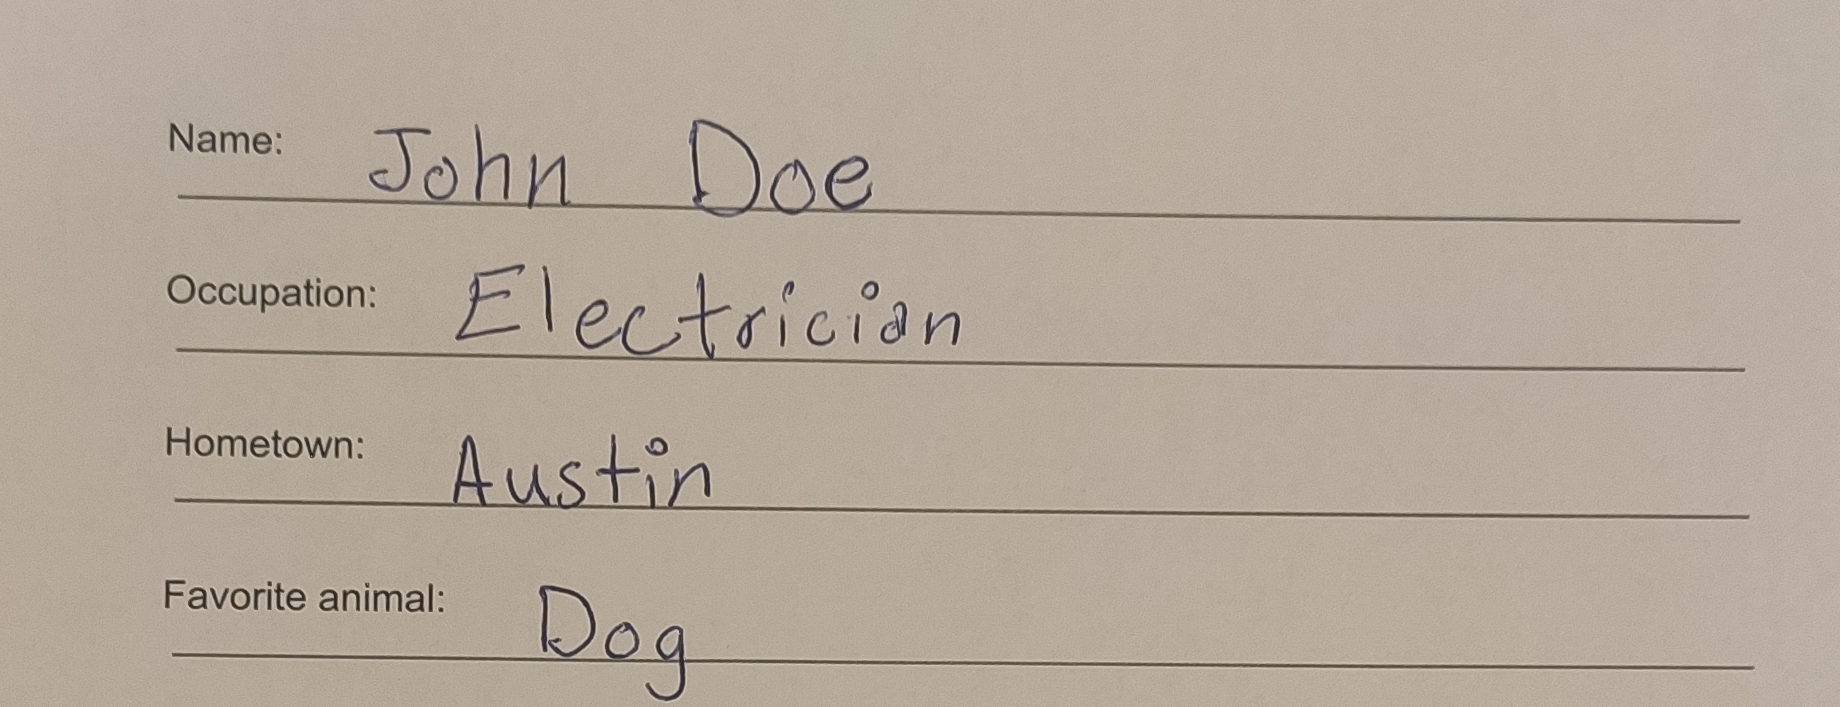 Name: John Doe
Occupation: Electrician
Hometown: Austin
Favorite animal: Dog